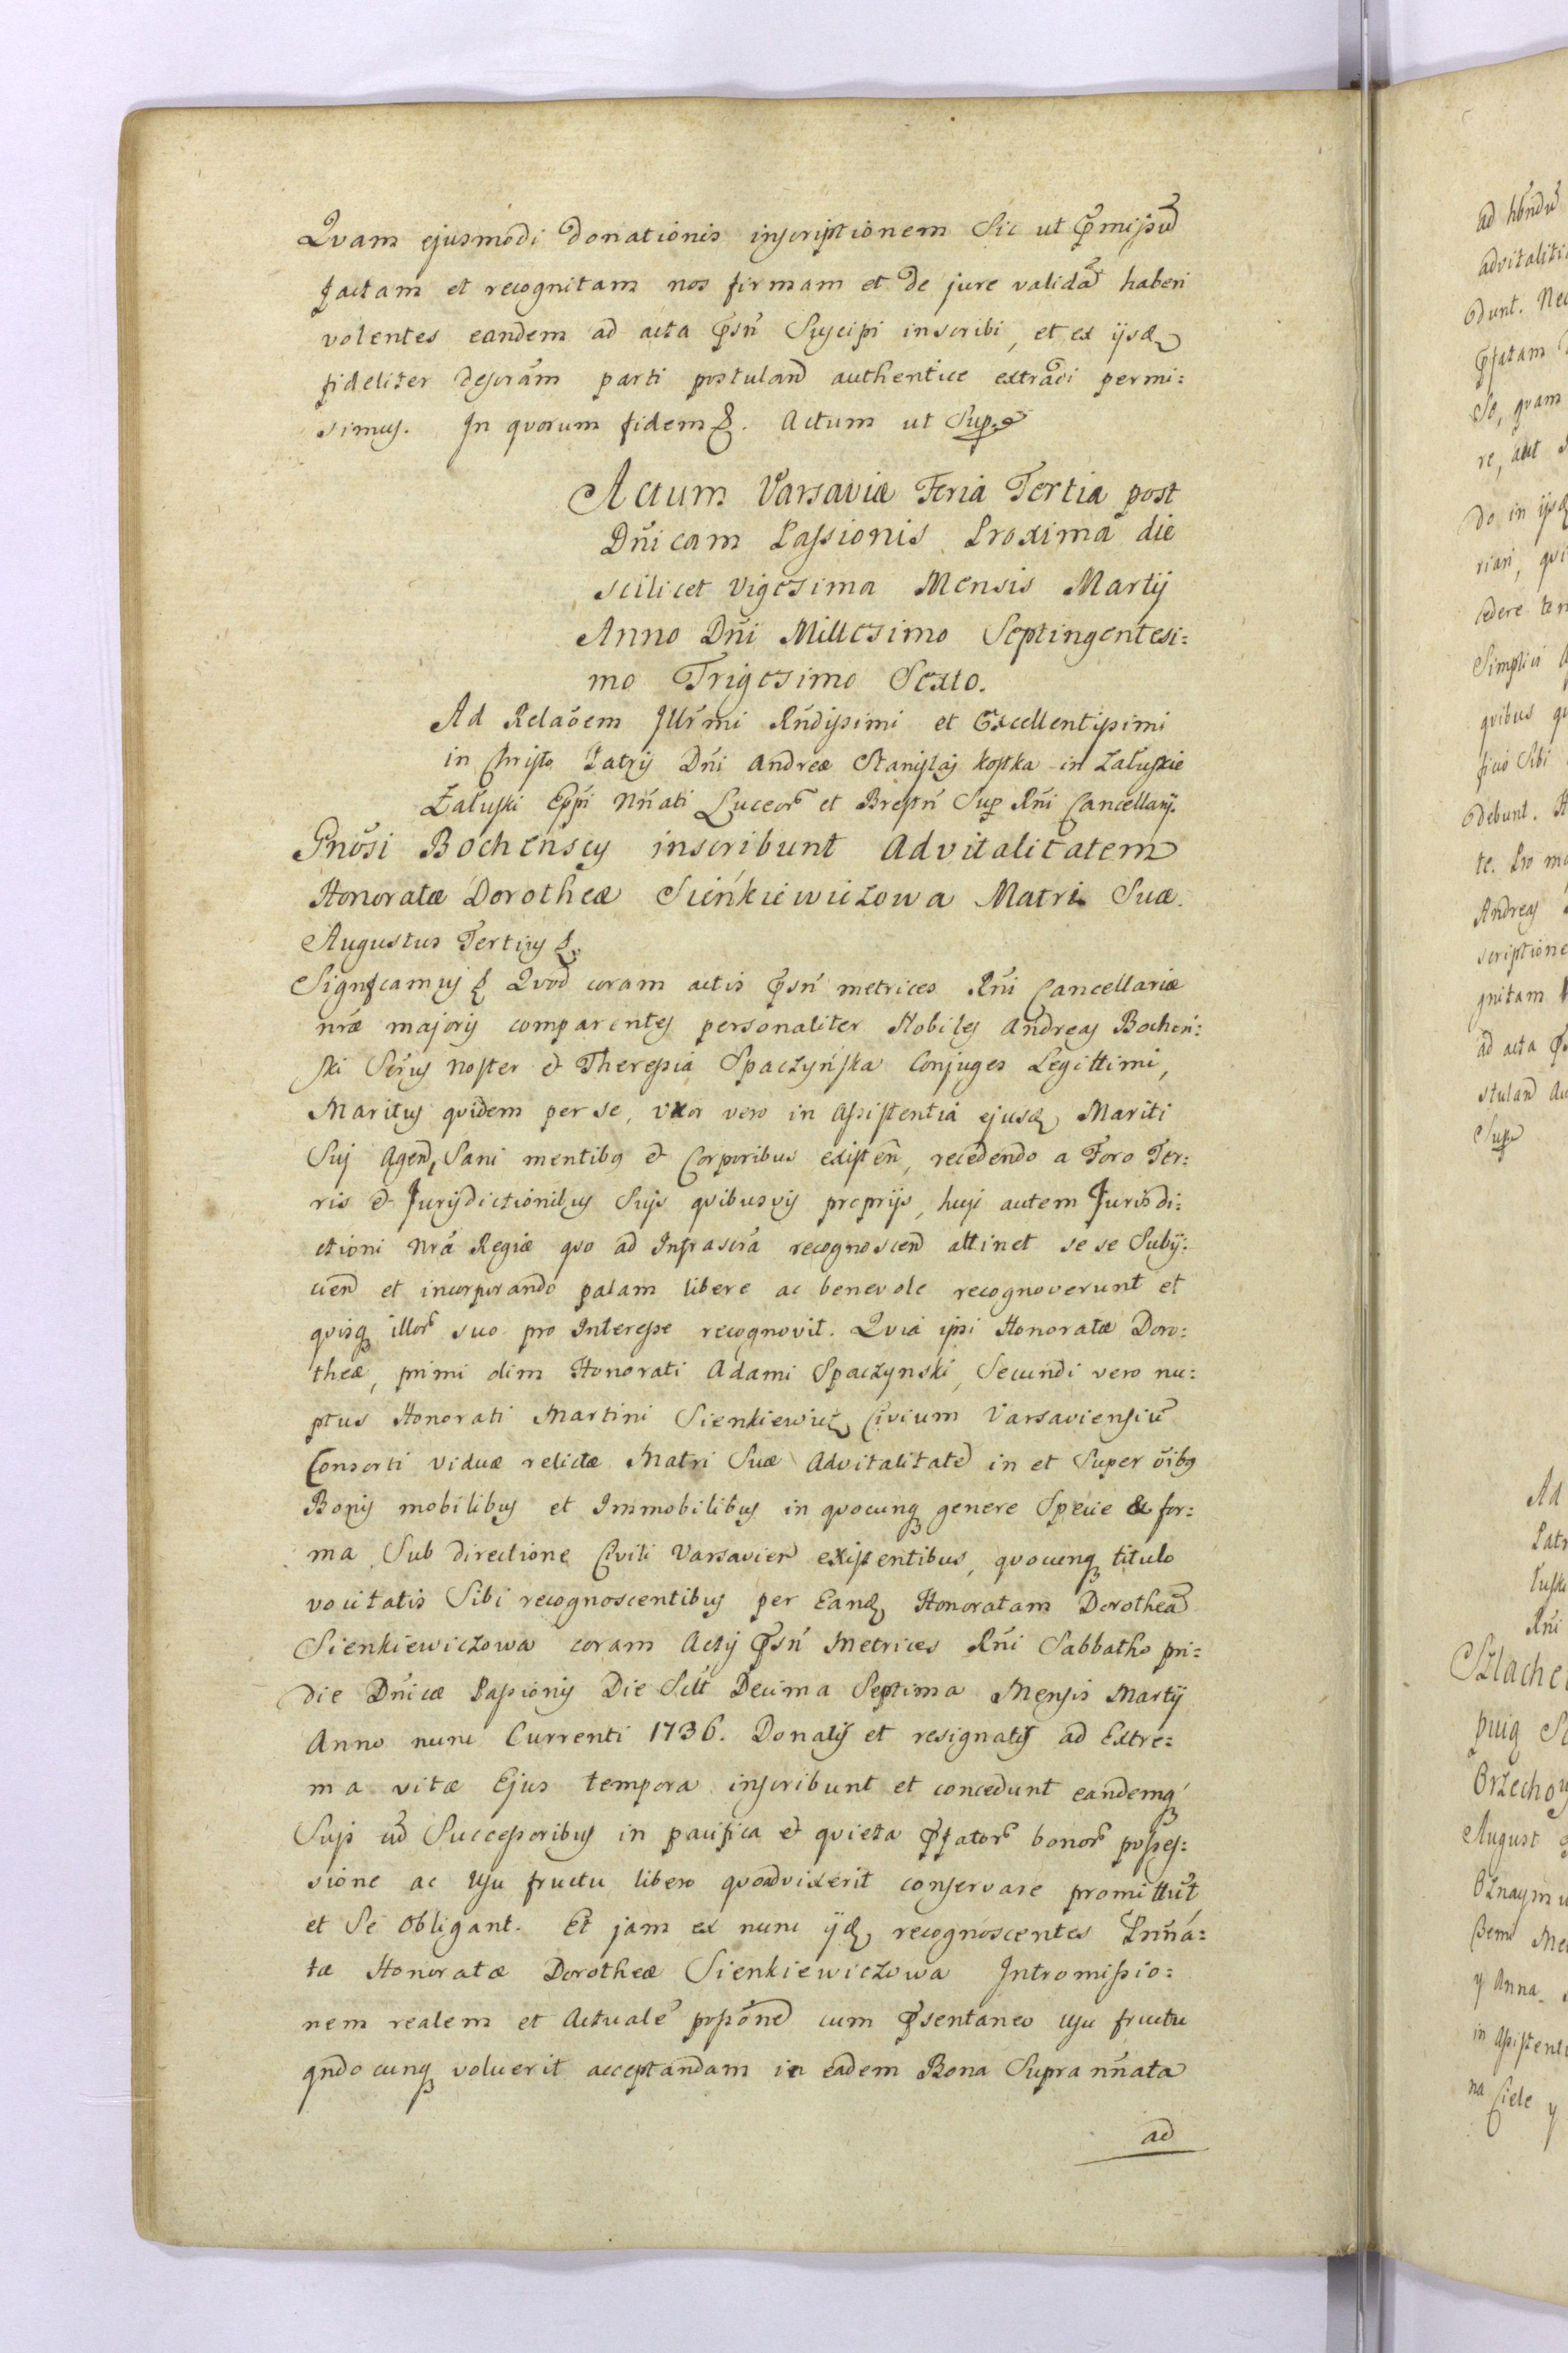 Qvam ejusmodi donationis inscriptionem Sic ut p̃missũ
factam et recognitam nos firmam et de jure validã haberi
volentes eandem ad acta p̃sñ Suscipi inscribi, et ex ijsd
fideliter descrãm parti postuland authentice extradi permi:
simus. In qvorum fidem &. Actum ut Supra
Actum Varsaviæ Feria Tertia post
Dñicam Passionis Proxima die
scilicet Vigesima Mensis Martij
Anno Dñi Millesimo Septingentesi:
mo Trigesimo Sexto.
Ad Relaõem Jllr̃mi Rñdissimi et Excellentissimi
in Christo Patris Dñi Andreæ Stanislaj Kostka in Załuskie
Załuski Eppĩ Nñati Luceor̃ et Brestñ Sup Rñi Cancellarij.
Gnõsi Bochenscy inscribunt Advitalitatem
Honoratæ Dorotheæ Sieńkiewiczowa Matri Suæ.
Augustus Tertius &.
Significamus & Qvod coram actis p̃sñ metrices Rñi Cancellariæ
nr̃æ majoris comparentes personaliter Nobiles Andreas Bocheń:
ski Ser̃us Noster et Theressia Spaczyńska Conjuges Legittimi,
Maritus qvidem per se, vxor vero in Assistentia ejusd Mariti
Suj Agend, Sani mentibq et Corporibus existeñ, recedendo a Foro Ter:
ris et Jurisdictionibus Suis qvibusvis proprijs, huic autem Jurisdi:
ctioni Nrã Regiæ qvo ad Infrascrã recognoscend attinet se se Subij:
ciend et incorporando palam libere ac benevole recognoverunt et
qvisq illor̃ suo pro Interesse recognovit. Qvia ipsi Honoratæ Doro:
theæ, primi olim Honorati Adami Spaczynski, Secundi vero nu:
ptus Honorati Martini Sienkiewicz Civium Varsaviensiũ
Consorti viduæ relictæ Matri Suæ Advitalitatẽ in et Super õibq
Bonis mobilibus et Immobilibus in qvocunq genere Specie & for:
ma Sub directione Civili Varsavieñ existentibus, qvocunq titulo
vocitatis Sibi recognoscentibus per Eand Honoratam Dorotheã
Sienkiewiczowa coram Actis P̃sñ Metrices Rñi Sabbatho pri:
die Dñicæ Passionis Die Scilt Decima Septima Mensis Martij
Anno nunc Currenti 1736. Donatis et resignatis ad Extre:
ma vitæ Ejus tempora inscribunt et concedunt eandemq
Suis cũ Successoribus in pacifica et qvieta p̃fator̃ bonor̃ posses:
sione ac usu fructu libero qvoadvixerit conservare promittũt
et Se Obligant. Et jam ex nunc ijd recognoscentes Pnñã:
tæ Honoratæ Dorotheæ Sienkiewiczowa Intromissio:
nem realem et Actualẽ possõnẽ cum p̃sentaneo usu fructu
qndocunq voluerit acceptandam in eadem Bona Supra nñata
ad